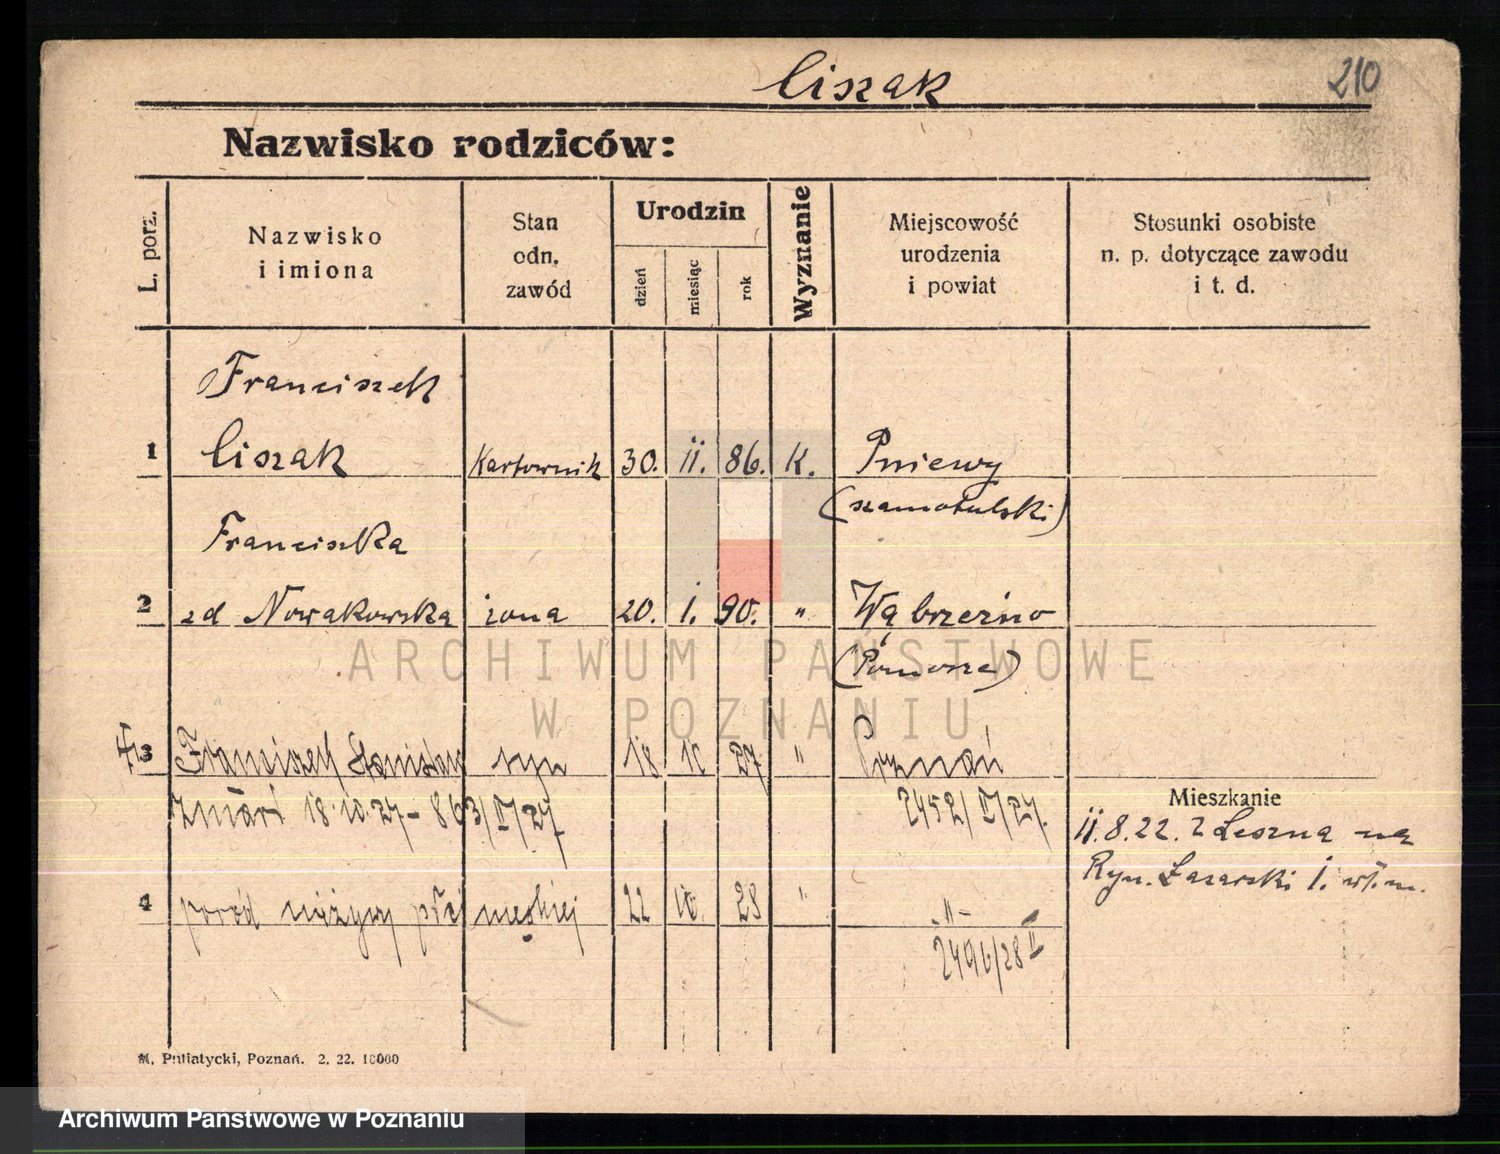 Ciszak
210
Nazwisko rodziców:
L. porz.
Nazwisko
i imiona
Stan
odn.
zawód
Urodzin
dzień
miesiąc
rok
Wyznanie
Miejscowość
urodzenia
i powiat
Stosunki osobiste
n. p. dotyczące zawodu
i t. d.
Franciszek
1 Ciszak Kartownik 30. 11. 86. K. Pniewy
(szamotulski)
Franciszka
2 zd Nowakowska żona 20. 1. 90. " Wąbrzeźno
(Pomorze)
3 Franciszek Stanisław syn 18 10 27 " Poznań
zmarł 18.10.27 - 863/II/27
2452/II/27.
Mieszkanie
11.8.22. z Leszna na
Ryn. Łazarski 1. wł. m.
4 poród nieżywy płci męskiej 22 10. 28 " -"-
2496/28 II
M. Putiatycki, Poznań. 2. 22. 10000
ARCHIWUM PAŃSTWOWE
W POZNANIU
Archiwum Państwowe w Poznaniu